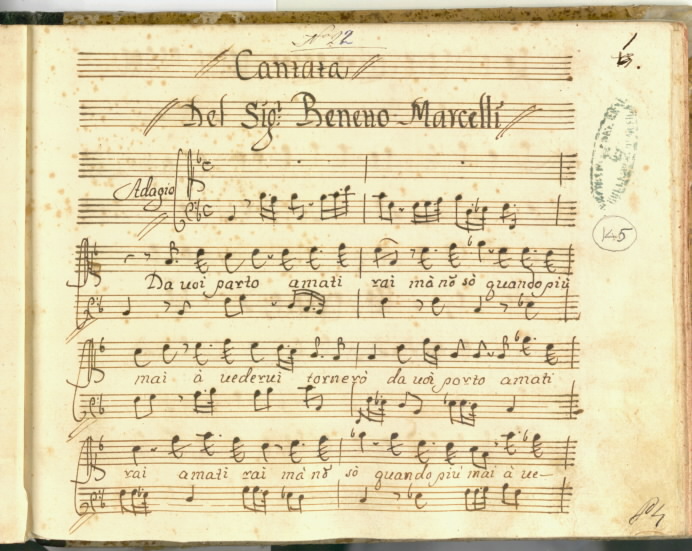 No. 22
1
Cantata
Del Sigr. Beneno Marcelli
Adagio
145
Da uoi parto amati rai mà nō sò quando più
mai à uederui tornerò da uoi parto amati
rai amati rai mà nō sò quando più mai à ue-